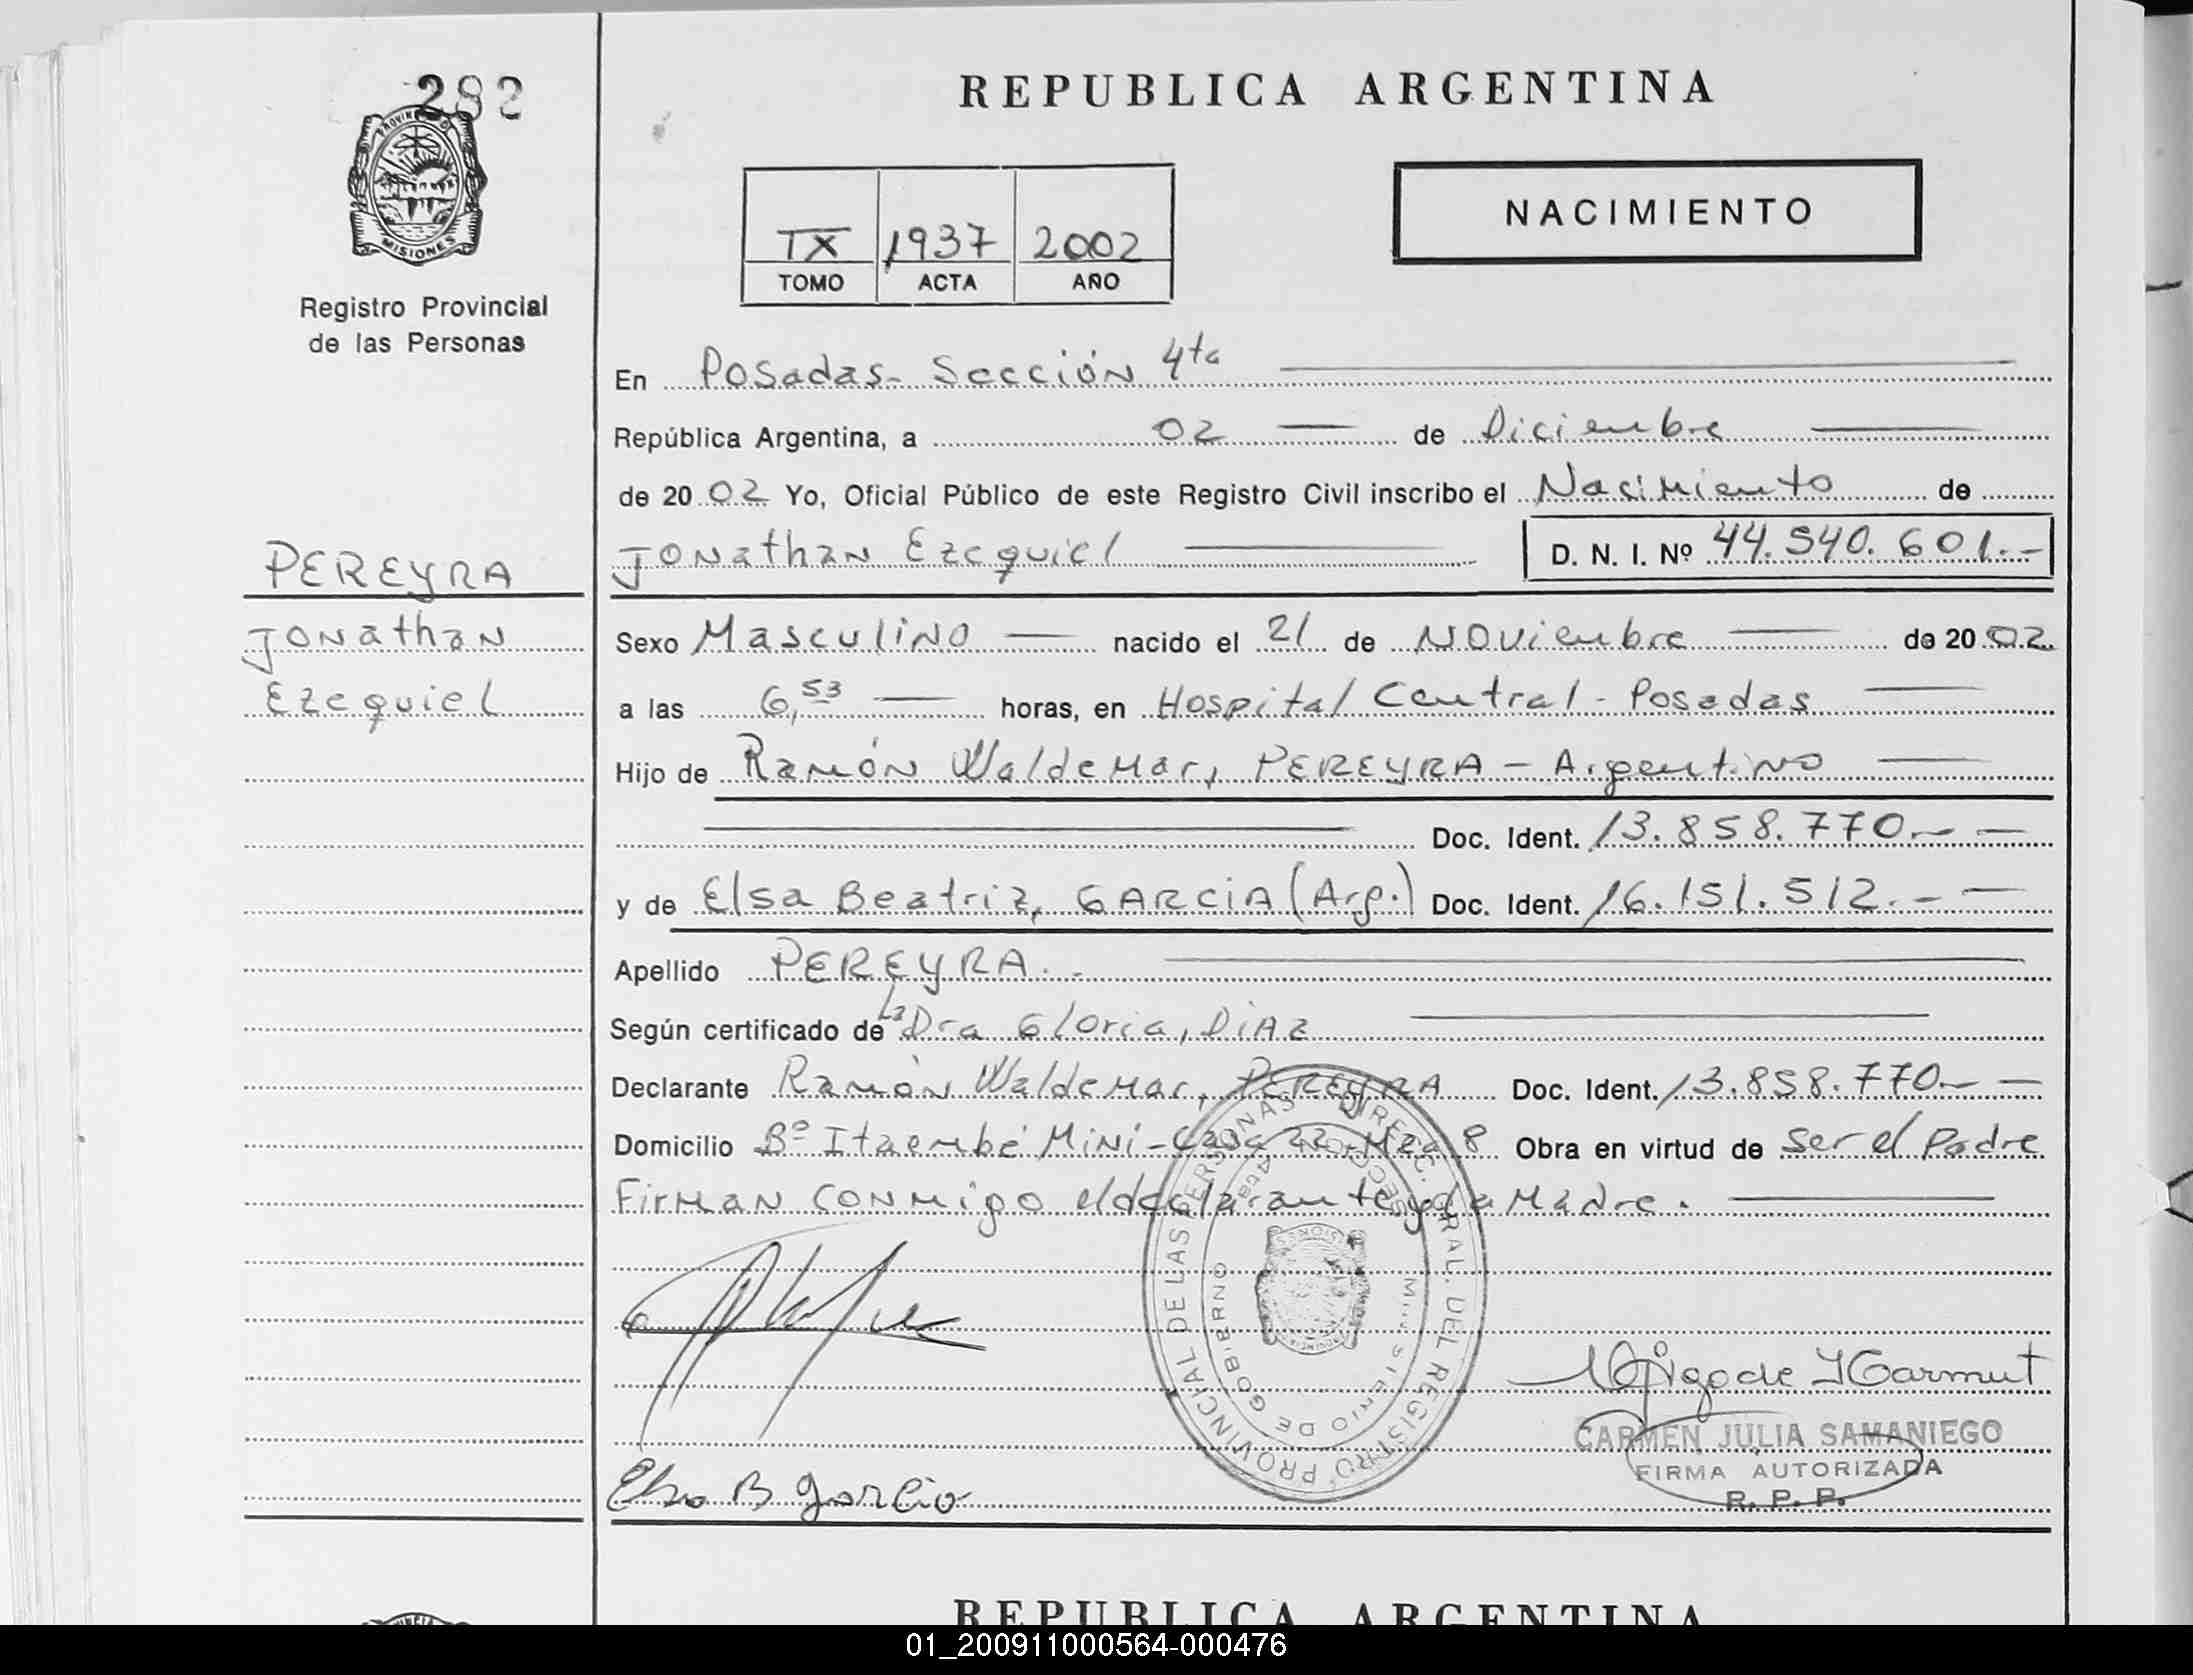 282
REPUBLICA ARGENTINA
PROVINCIA DE MISIONES
Registro Provincial
de las Personas
IX 1937 2002
TOMO ACTA AÑO
NACIMIENTO
En Posadas - Sección 4ta
República Argentina, a 02 de Diciembre
de 2002 Yo, Oficial Público de este Registro Civil inscribo el Nacimiento de
Jonathan Ezequiel D. N. I. Nº 44.540.601.-
PEREYRA
Jonathan
Ezequiel
Sexo Masculino nacido el 21 de Noviembre de 2002.
a las 6,53 horas, en Hospital Central - Posadas
Hijo de Ramón Waldemar, PEREYRA - Argentino
Doc. Ident. 13.858.770.-
y de Elsa Beatriz, GARCIA (Arg.) Doc. Ident. 16.151.512.-
Apellido PEREYRA.-
Según certificado de La Dra Gloria, DiAz
Declarante Ramón Waldemar, PEREYRA Doc. Ident. 13.858.770.-
Domicilio Bº Itaembé Mini - Casa 22 - Mza 8 Obra en virtud de ser el Padre
Firman conmigo el declarante y la Madre.
DIRECC. GRAL. DEL REGISTRO PROVINCIAL DE LAS PERSONAS
SECCION 4ta
MINISTERIO DE GOBIERNO
Elsa B Garcia
CARMEN JULIA SAMANIEGO
FIRMA AUTORIZADA
R. P. P.
REPUBLICA ARGENTINA
01_200911000564-000476